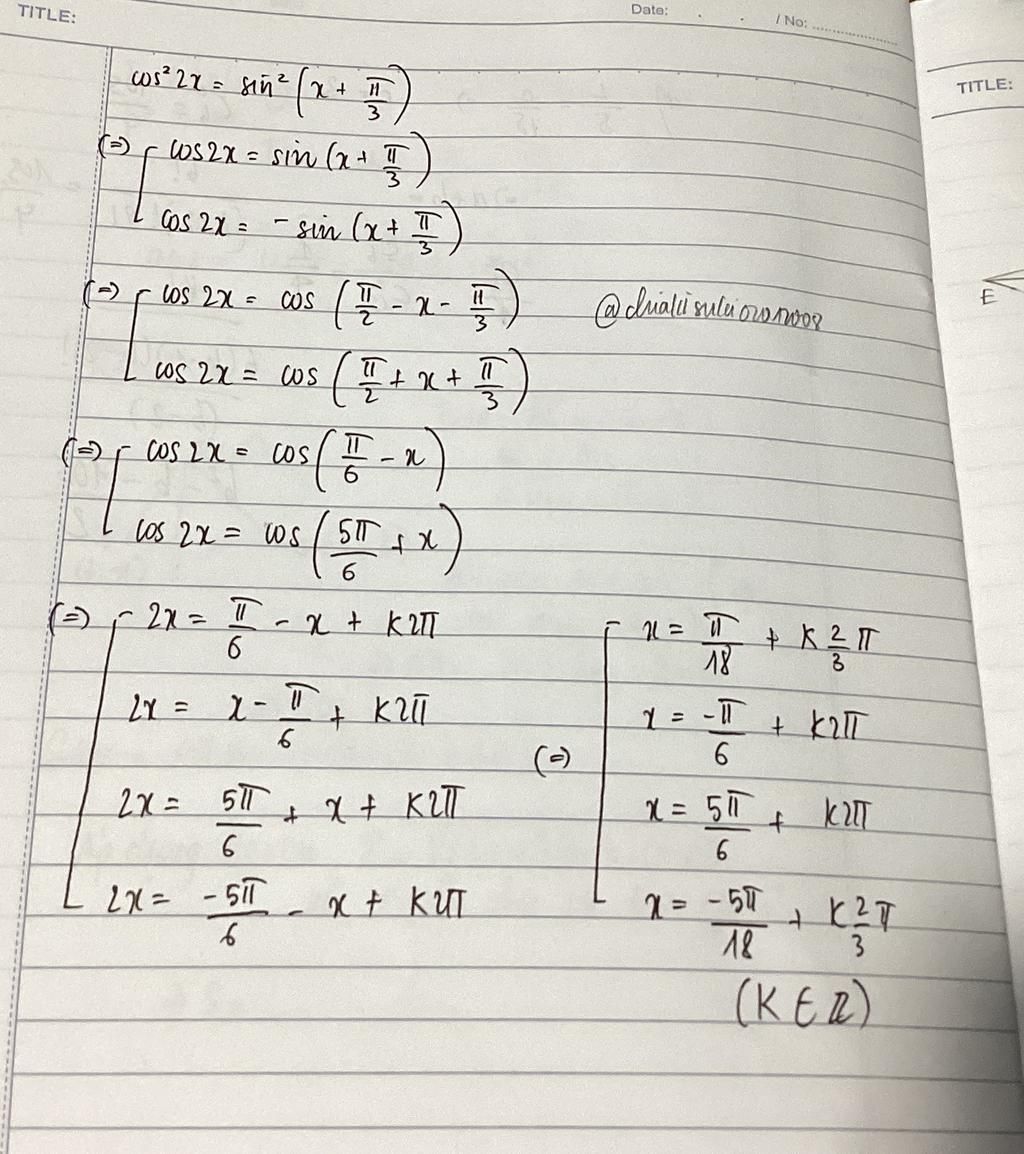 TITLE:
Date: . . / No:
cos² 2x = sin² (x + π/3)
(=) [ cos 2x = sin (x + π/3)
cos 2x = - sin (x + π/3)
(=) [ cos 2x = cos (π/2 - x - π/3)
cos 2x = cos (π/2 + x + π/3)
(=) [ cos 2x = cos (π/6 - x)
cos 2x = cos (5π/6 + x)
(=) [ 2x = π/6 - x + K2π
2x = x - π/6 + K2π
2x = 5π/6 + x + K2π
2x = -5π/6 - x + K2π
(=) [ x = π/18 + K 2/3 π
x = -π/6 + K2π
x = 5π/6 + K2π
x = -5π/18 + K 2/3 π
(K ∈ ℤ)
TITLE:
E